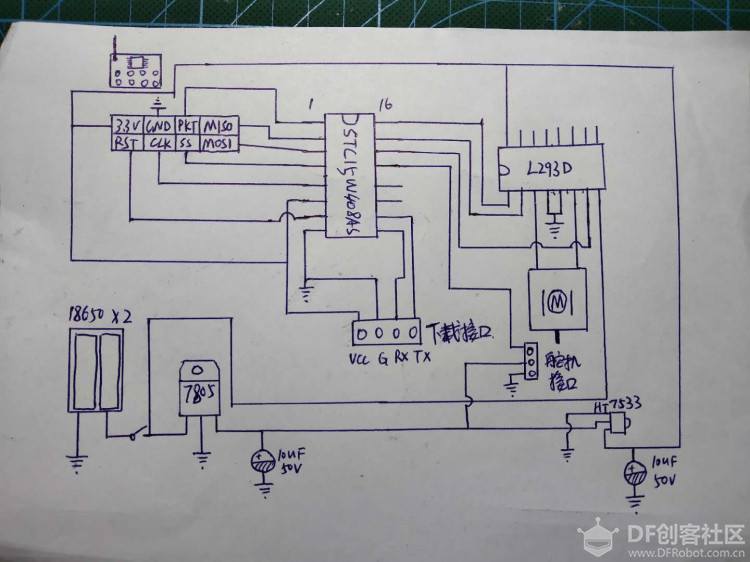 1
16
3.3V GND PKT MISO
RST CLK SS MOSI
STC15W408AS
L293D
M
18650 X2
7805
VCC G RX TX
下载接口
舵机
接口
HT7533
10UF
50V
10UF
50V
DF创客社区
www.DFRobot.com.cn